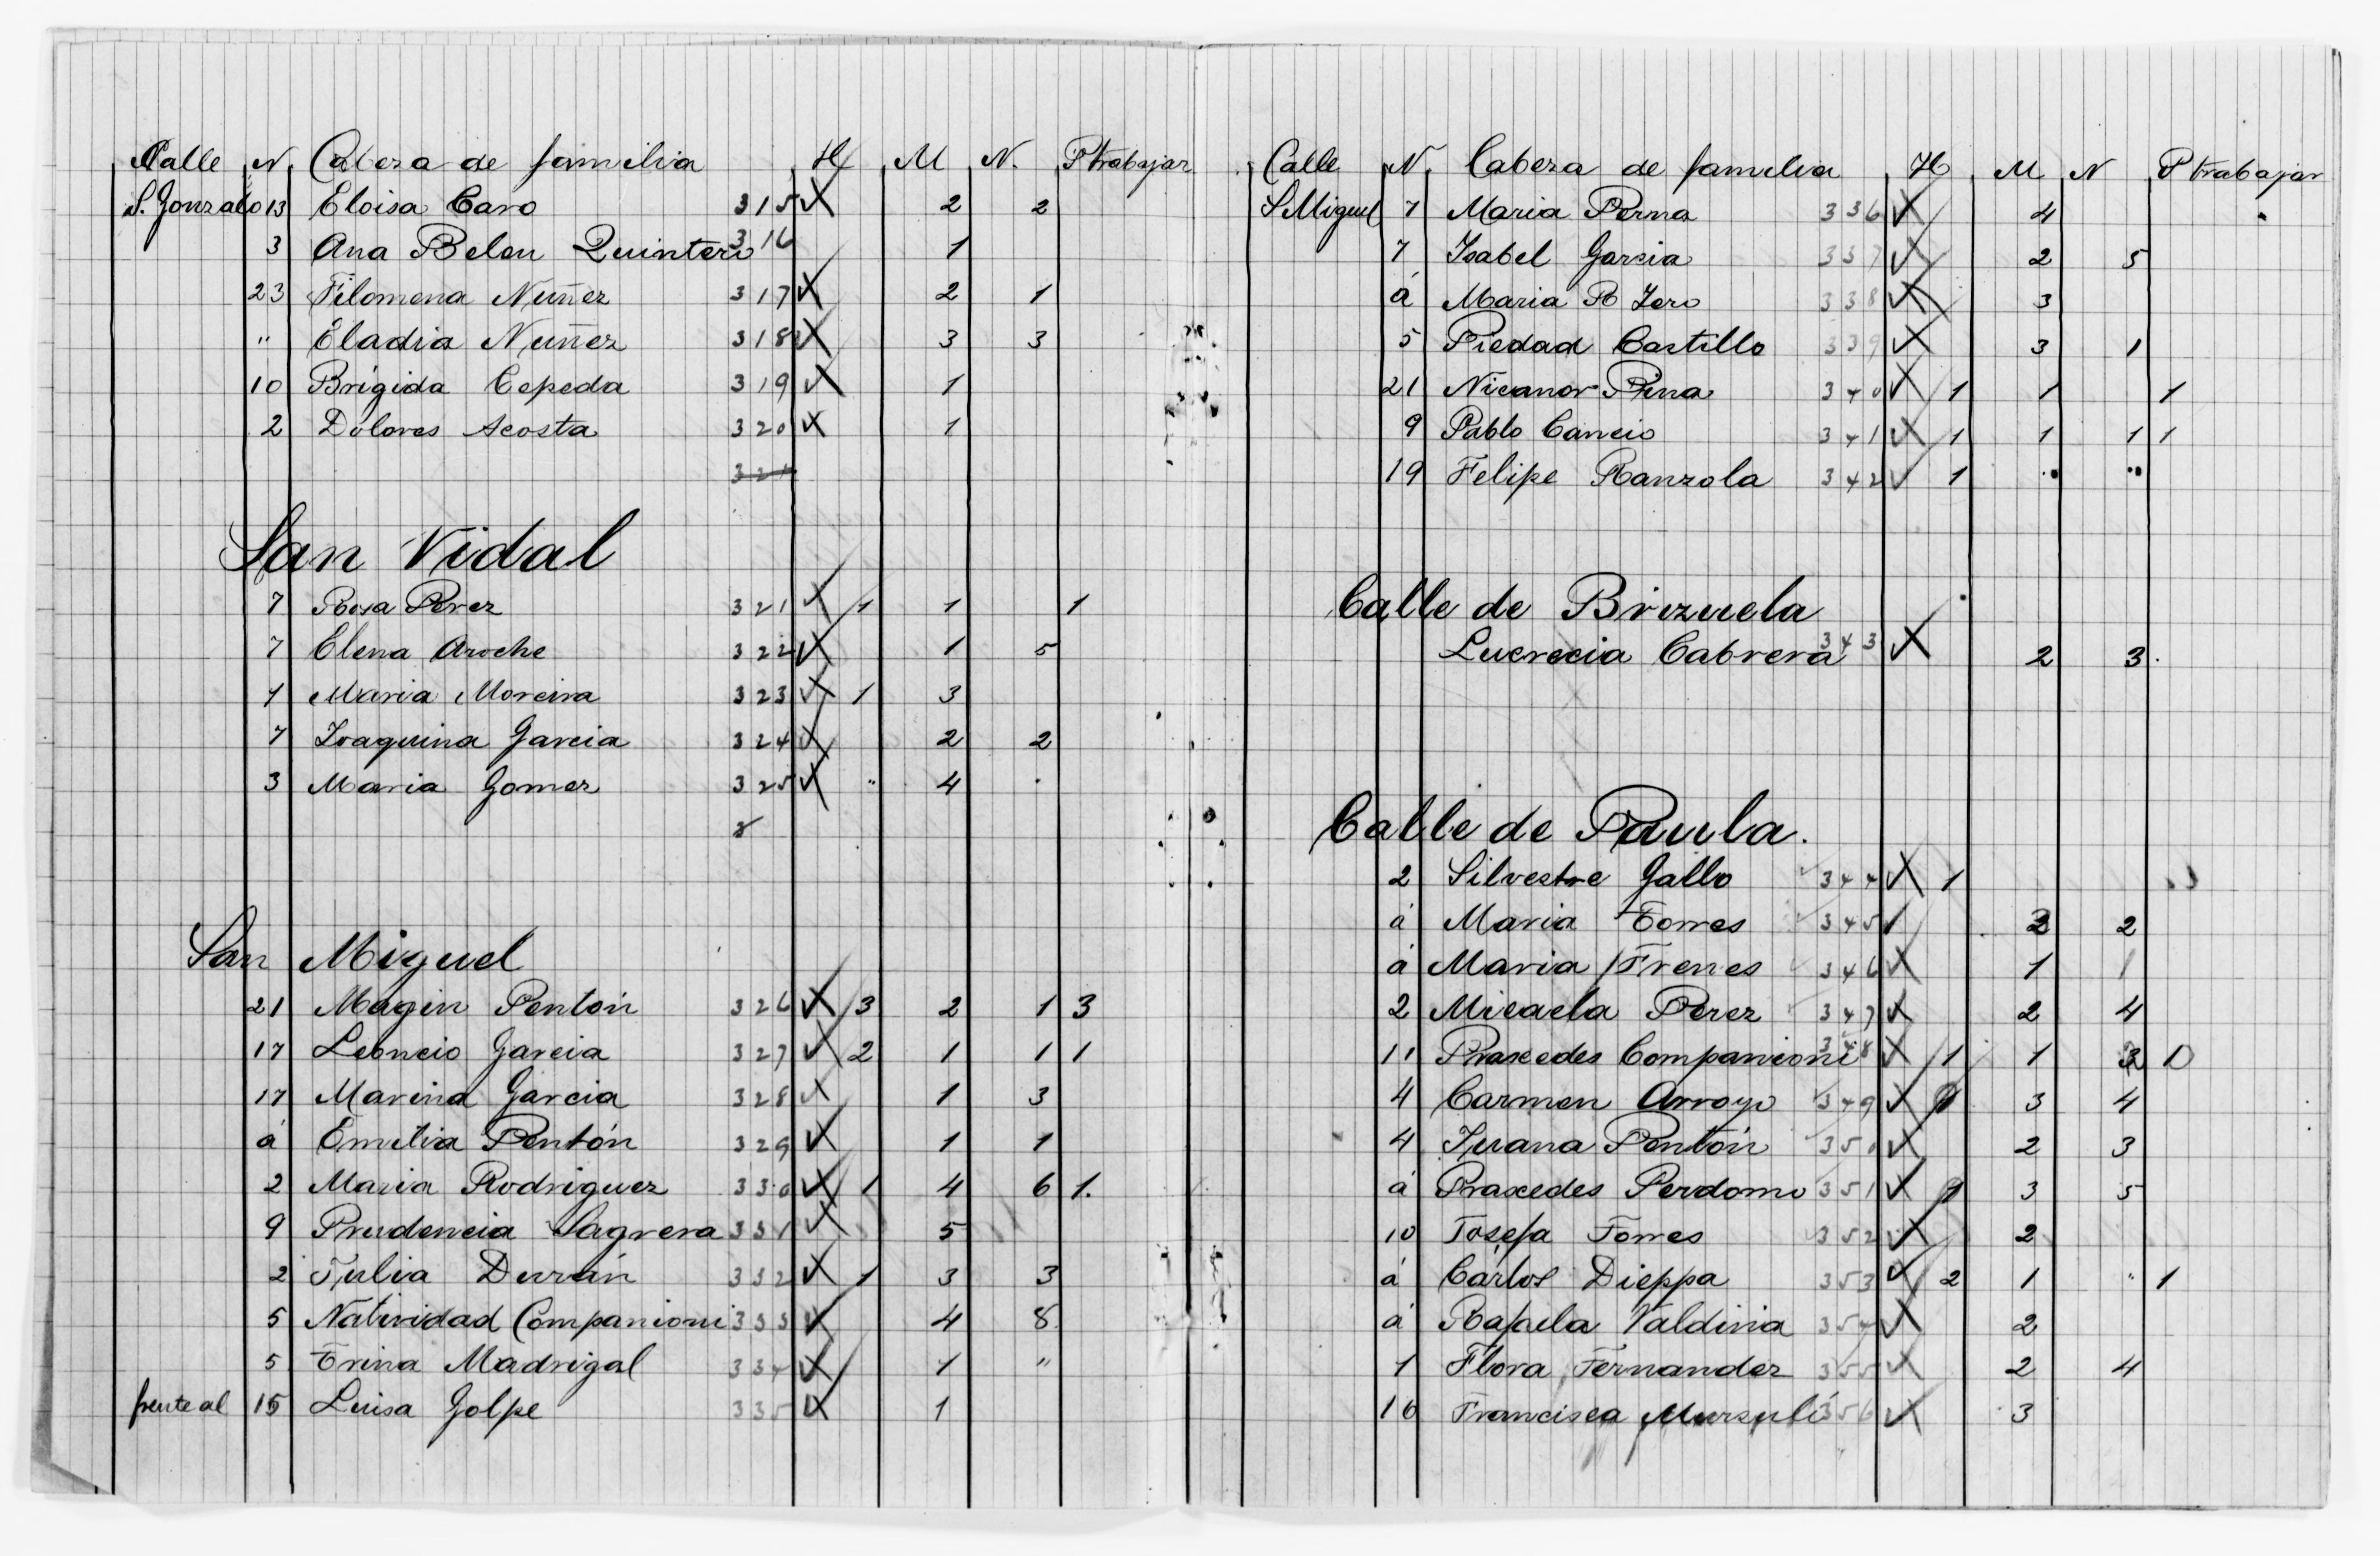 Calle N. Cabeza de familia H M N. P trabajar
S. Gonzalo 13 Eloisa Caro 315 2 2
3 Ana Belen Quintero 316 1
23 Filomena Nuñez 317 2 1
" Eladia Nuñez 318 3 3
10 Brígida Cepeda 319 1
2 Dolores Acosta 320 1
321
San Vidal
7 Rosa Perez 321 1 1 1
7 Elena Aroche 322 1 5
1 Maria Moreira 323 1 3
7 Joaquina Garcia 324 2 2
3 Maria Gomez 325 " 4 .
San Miguel
21 Magin Pentón 326 3 2 1 3
17 Leoncio Garcia 327 2 1 1 1
17 Marina Garcia 328 1 3
á Emilia Pentón 329 1 1
2 Maria Rodriguez 330 1 4 6 1.
9 Prudencia Sagrera 331 5
2 Julia Durán 332 1 3 3
5 Natividad Companioni 333 4 8
5 Trina Madrigal 334 1 "
frente al 15 Luisa Golpe 335 1
Calle N. Cabeza de familia H M N P trabajar
S Miguel 7 Maria Perna 336 4
7 Isabel Garcia 337 2 5
á Maria R 338 3
5 Piedad Castillo 339 3 1
21 Nicanor Pina 340 1 1 1
9 Pablo Cancio 341 1 1 1 1
19 Felipe Ranzola 342 1 " "
Calle de Brizuela
Lucrecia Cabrera 343 2 3.
Calle de Paula.
2 Silvestre Gallo 344 1
á Maria Torres 345 2
á Maria Frenes 346 1 1
2 Micaela Perez 347 2 4
11 Praxedes Companioni 348 1 1
4 Carmen Arroyo 349 3 4
4 Juana Pentón 350 2 3
á Praxedes Perdomo 351 3 5
10 Josefa Torres 352 2
á Cárlos Dieppa 353 2 1 " 1
á Rafaela Valdivia 354 2
1 Flora Fernandez 355 2 4
16 Francisca Mursulí 356 3